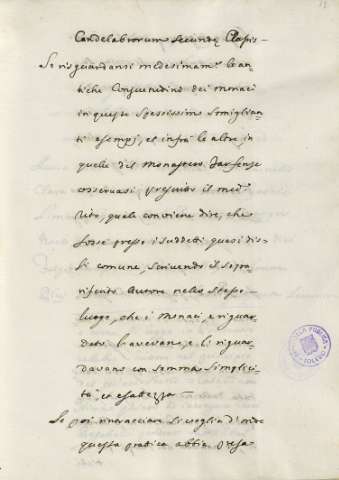 Candelabrorum secundę Classis –
Se risguardansi medesimam.te le an-
tiche Consuetudini dei Monaci
in queste spessissimo somiglian-
ti esempj, et infrà le altre, in
quelle del Monastero Farfense
osservasi prescritto il med.o
Rito, quale conviene dire, che
fosse presso i suddetti quasi dis-
si comune, scrivendo il sopra-
riferito Autore nello stesso
luogo, che i Monaci, e riguar-
dati l'avevano, e li riguar-
davano con somma simplici-
tà, et esattezza –
Se poi rintracciare si voglia d'onde
questa pratica abbia presa